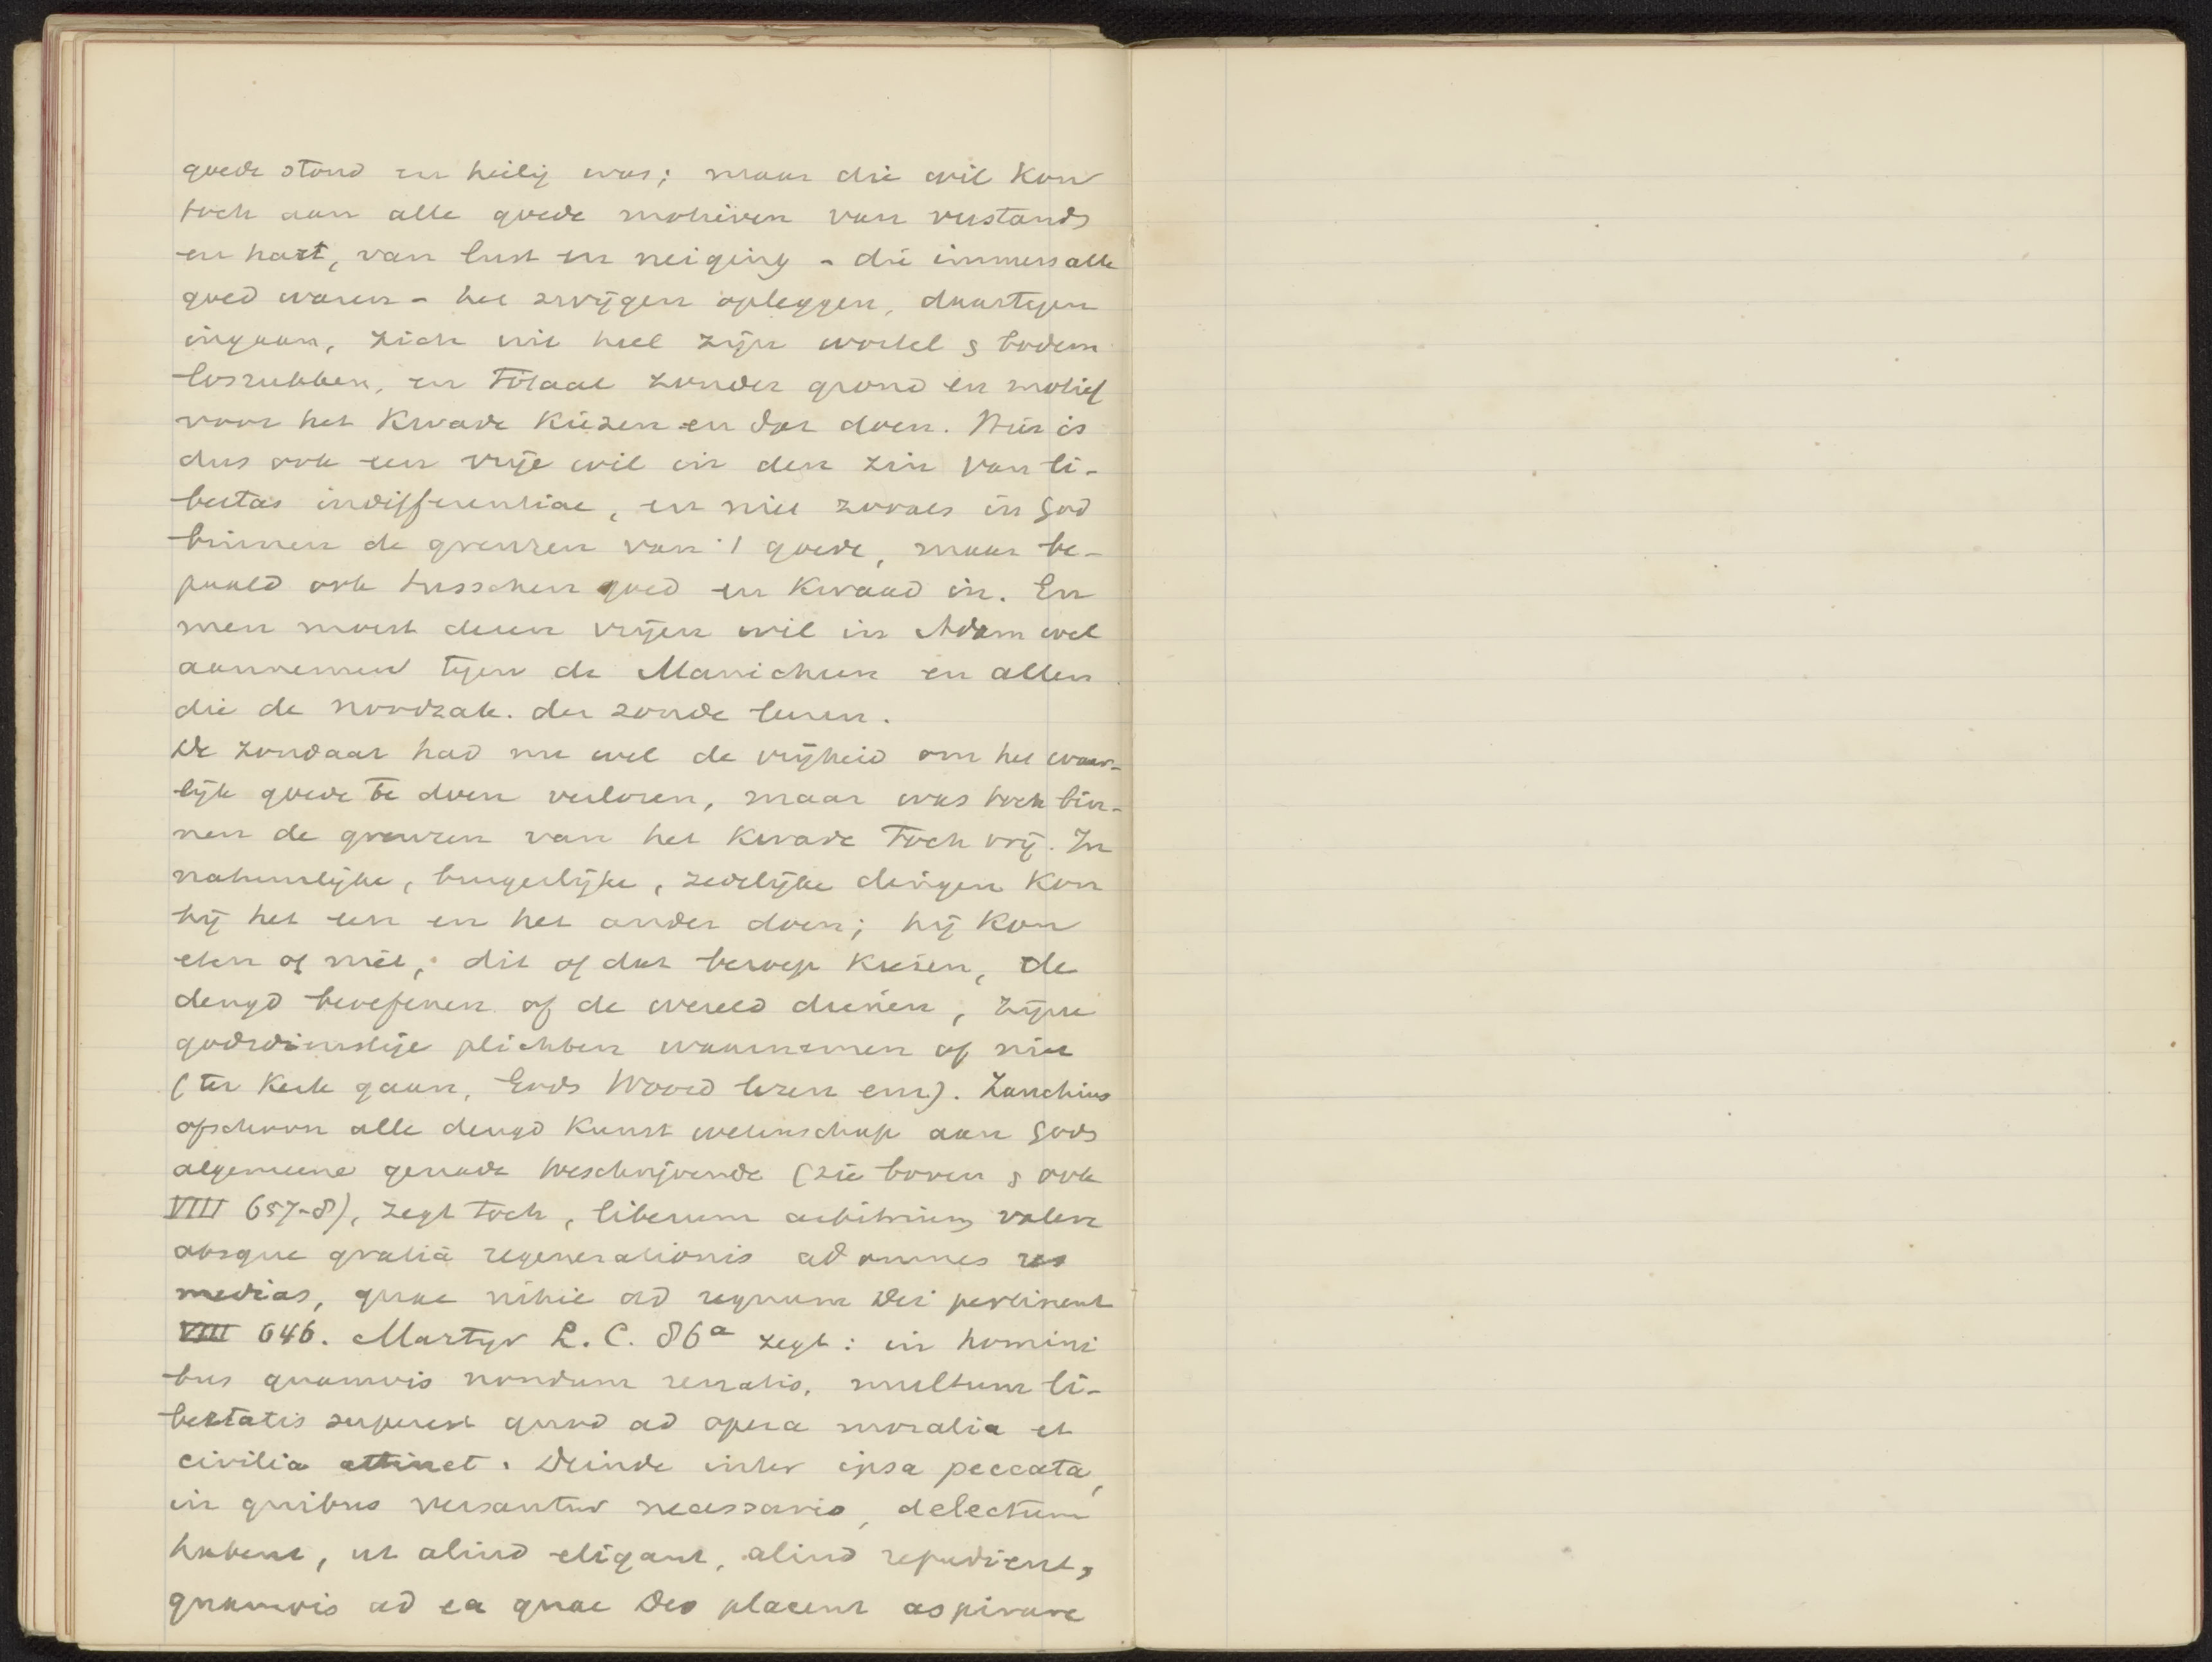 goede stond en heilig was; maar die wil kon
toch aan alle goede motieven van verstands
en hart, van lust en neiging - die immers alle
goed waren - het zwijgen opleggen, daartegen
ingaan, zich uit heel zijn wortel & bodem
losrukken, en totaal zonder grond en motief
voor het kwade kiezen en dat doen. Hier is
dus ook een vrije wil in den zin van li-
bertas indifferentiae, en niet zooals in God
binnen de grenzen van 't goede, maar be-
paald ook tusschen goed en kwaad in. En
men moest dezen vrijen wil in Adam wel
aannemen tegen de Manicheen en allen
die de noodzak. der zonde leren.
De zondaar had nu wel de vrijheid om het waar-
lijk goede te doen verloren, maar was toch bin-
nen de grenzen van het kwade toch vrij. In
natuurlijke, burgerlijke, zedelijke dingen kon
hij het een en het ander doen; hij kon
eten of niet, dit of dat beroep kiezen, de
deugd beoefenen of de wereld dienen, zijne
godsdienstige plichten waarnemen of niet
(ter kerk gaan, Gods Woord lezen enz). Zanchius
ofschoon alle deugd kunst wetenschap aan Gods
algemeene genade toeschrijvende (zie boven & ook
VIII 657-8), zegt toch, liberum arbitrium valere
absque gratiā regenerationis ad omnes res
medias, quae nihil ad regnum Dei pertinent
VIII 646. Martyr L. C. 86a zegt: in homini
bus quamvis nondum renatis, multum li-
bertatis superest quod ad opera moralia et
civilia attinet. Deinde inter ipsa peccata,
in quibus versantur necessario, delectum
habent, ut aliud eligant, aliud repudient,
quamvis ad ea quae Deo placent aspirare